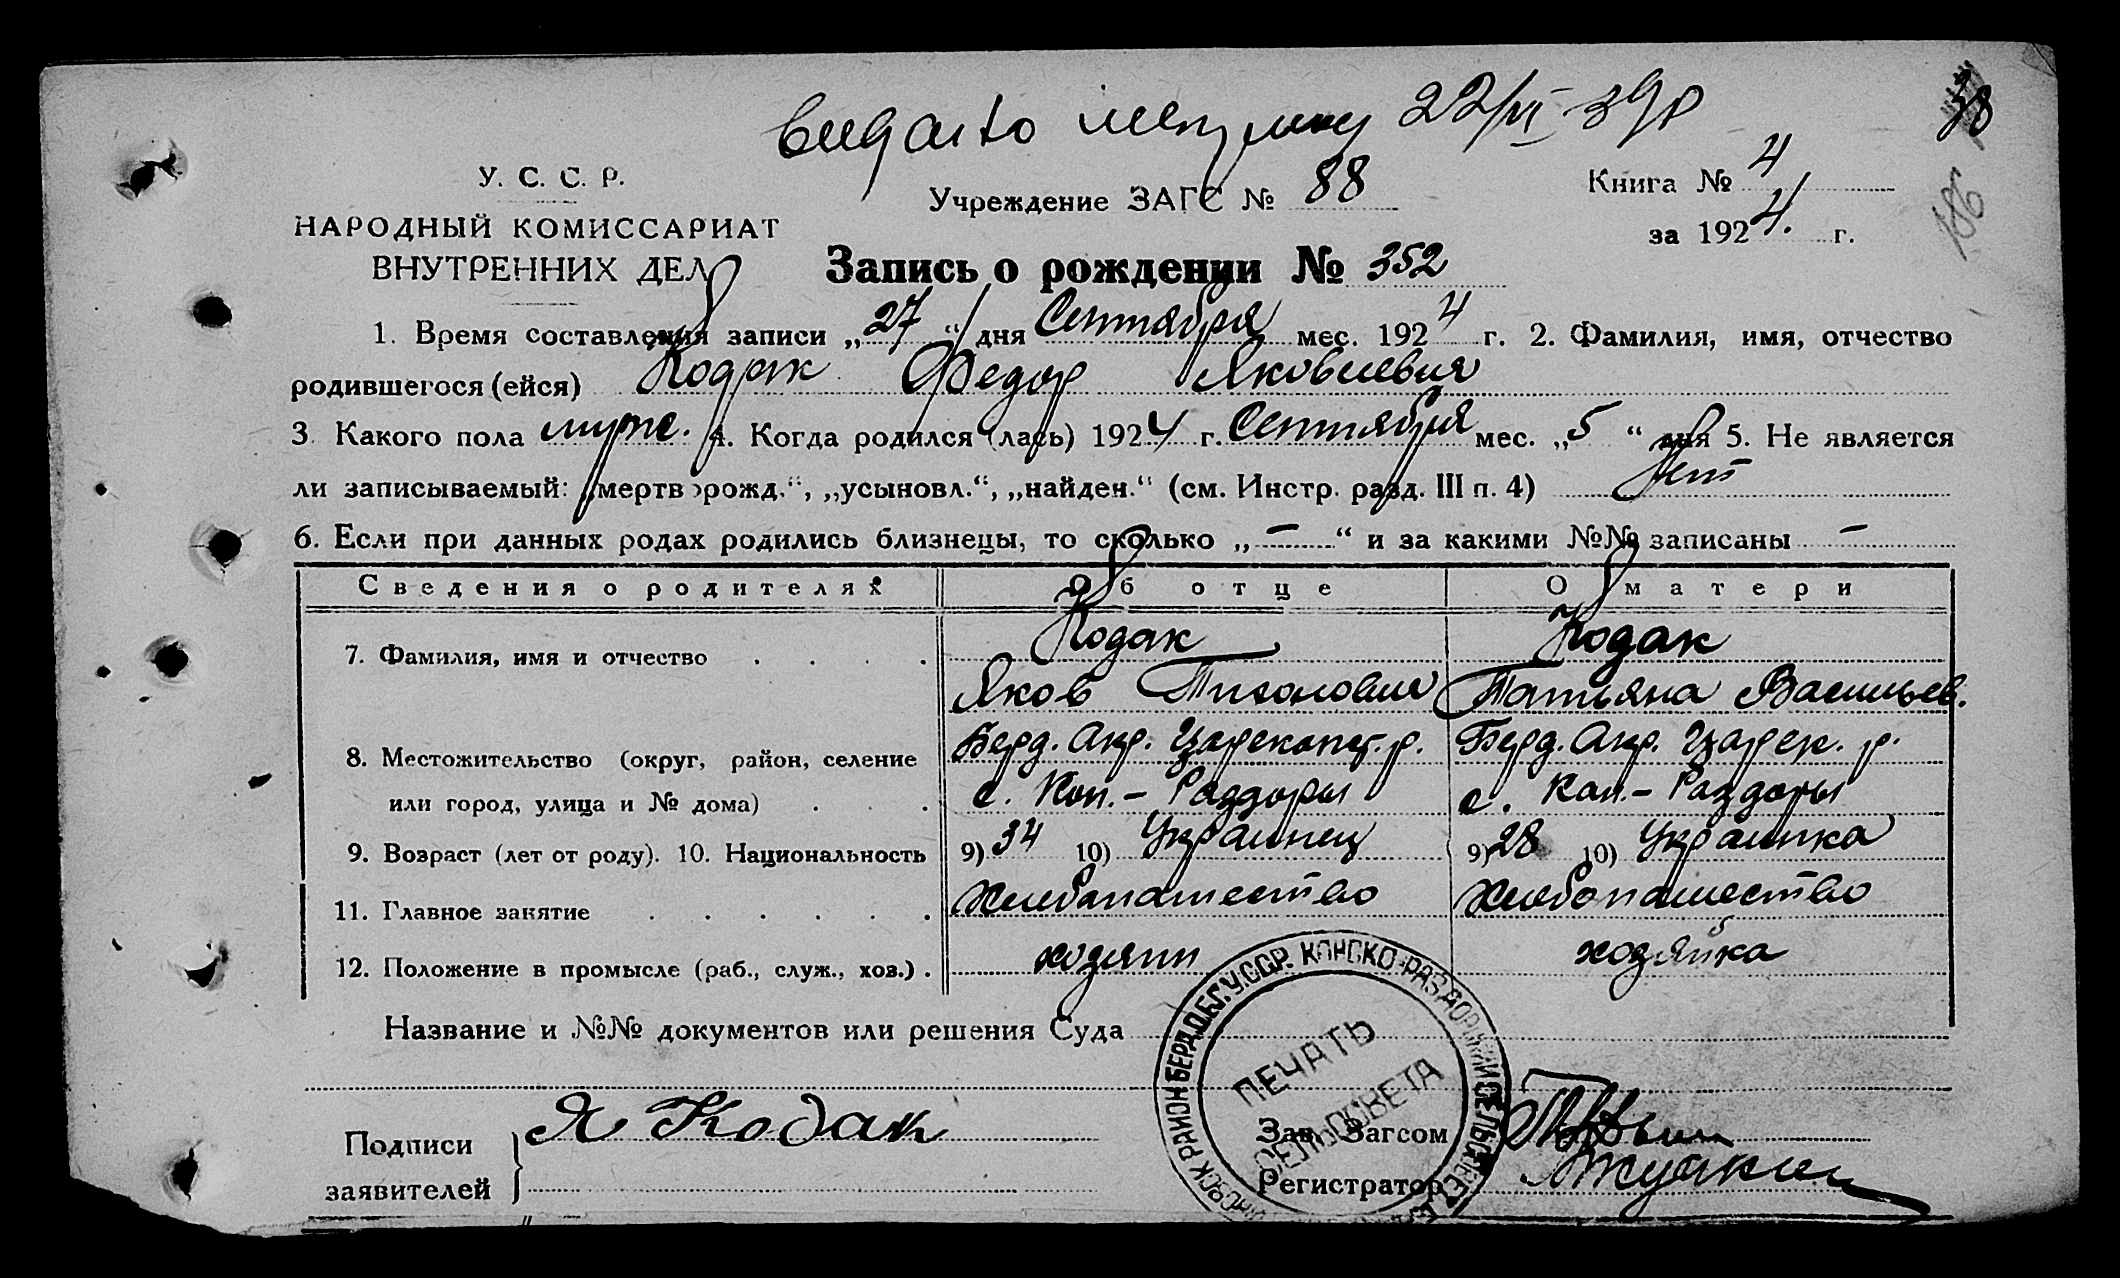 22/VI 39 р
38
186
У. С. С. Р.
Учреждение ЗАГС № 88
Книга № 4
за 1924 г.
НАРОДНЫЙ КОМИССАРИАТ
ВНУТРЕННИХ ДЕЛ
Запись о рождении № 352
1. Время составления записи „27“ дня Сентября мес. 1924 г. 2. Фамилия, имя, отчество
родившегося (ейся) Кодак Федор Яковлевич
3. Какого пола муж. 4. Когда родился (лась) 1924 г. Сентября мес. „5“ дня 5. Не является
ли записываемый: „мертворожд.“, „усыновл.“, „найден.“ (см. Инстр. разд. III п. 4) Нет
6. Если при данных родах родились близнецы, то сколько „—“ и за какими №№ записаны —
Сведения о родителях Об отце О матери
7. Фамилия, имя и отчество . . . . Кодак Кодак
Яков Тихонович Татьяна Васильев.
8. Местожительство (округ, район, селение Берд. Окр. Царекопст. р. Берд. Окр. Царек. р.
или город, улица и № дома) . . с. Кон.- Раздоры с. Кон.- Раздоры
9. Возраст (лет от роду). 10. Национальность 9) 34 10) Украинец 9) 28 10) Украинка
11. Главное занятие . . . . . . Хлебопашество Хлебопашество
12. Положение в промысле (раб., служ., хоз.) . хозяин хозяйка
Название и №№ документов или решения Суда
БЕРД. ОБ. У.ССР. КОНСКО-РАЗДОР
ПЕЧАТЬ
СЕЛЬСОВЕТА
Подписи
заявителей
Я Кодак
Зав. Загсом
Регистратор